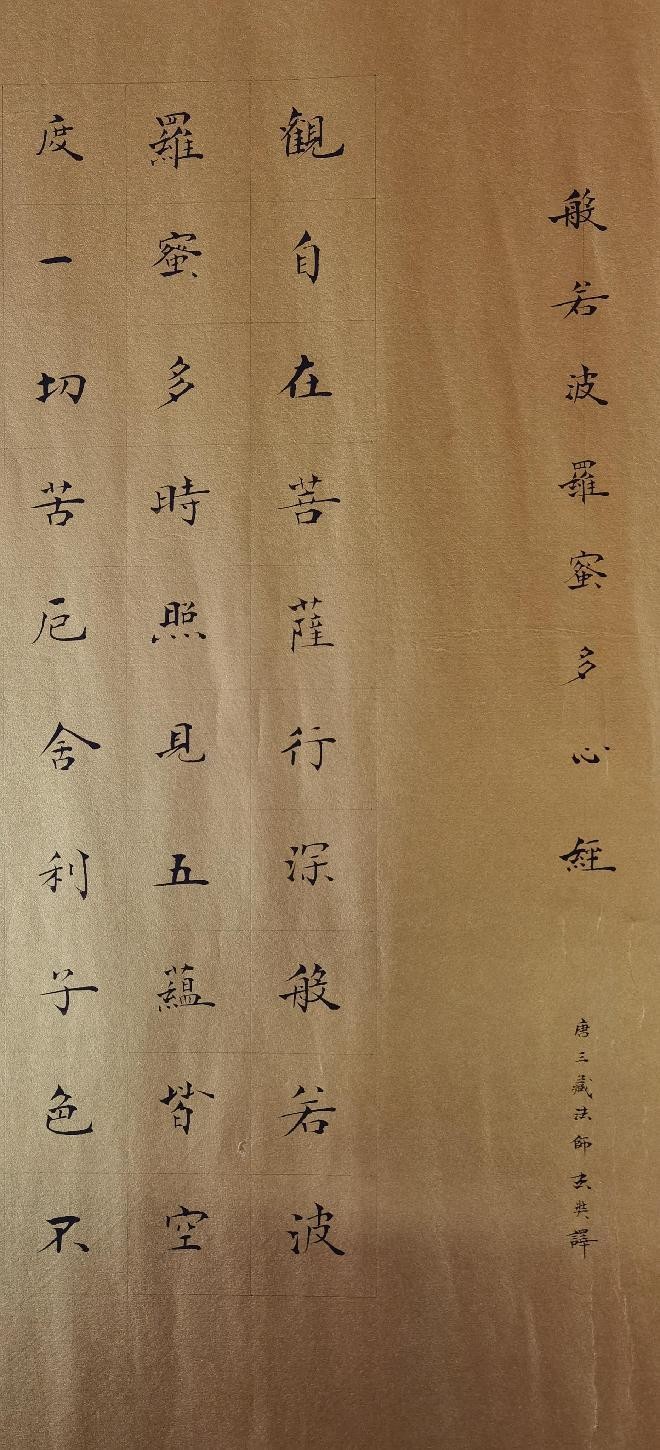 般若波羅蜜多心經
唐三藏法師玄奘譯
観自在菩薩行深般若波
羅蜜多時照見五蘊皆空
度一切苦厄舍利子色不